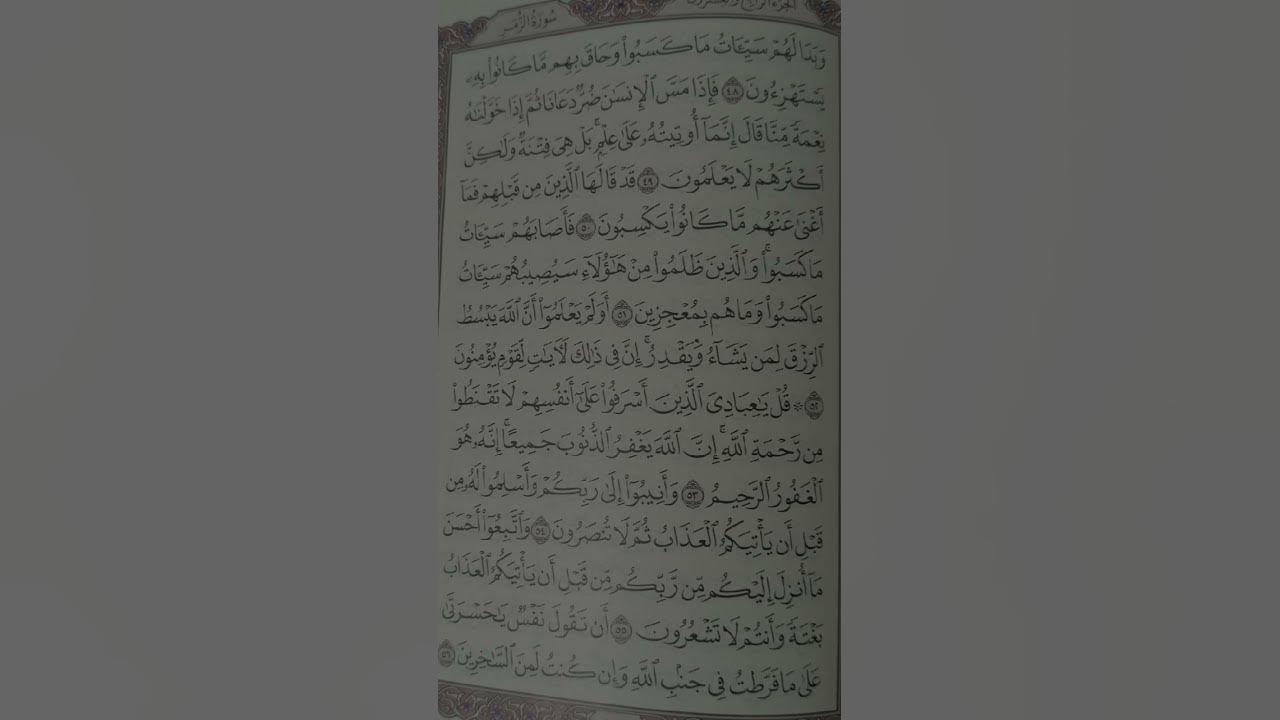 سُورَةُ الزُّمَرِ
وَبَدَا لَهُمْ سَيِّـَٔاتُ مَا كَسَبُوا۟ وَحَاقَ بِهِم مَّا كَانُوا۟ بِهِۦ
يَسْتَهْزِءُونَ ٤٨ فَإِذَا مَسَّ ٱلْإِنسَٰنَ ضُرٌّ دَعَانَا ثُمَّ إِذَا خَوَّلْنَٰهُ
نِعْمَةً مِّنَّا قَالَ إِنَّمَآ أُوتِيتُهُۥ عَلَىٰ عِلْمٍۭ ۚ بَلْ هِىَ فِتْنَةٌ وَلَٰكِنَّ
أَكْثَرَهُمْ لَا يَعْلَمُونَ ٤٩ قَدْ قَالَهَا ٱلَّذِينَ مِن قَبْلِهِمْ فَمَآ
أَغْنَىٰ عَنْهُم مَّا كَانُوا۟ يَكْسِبُونَ ٥٠ فَأَصَابَهُمْ سَيِّـَٔاتُ
مَا كَسَبُوا۟ ۚ وَٱلَّذِينَ ظَلَمُوا۟ مِنْ هَٰٓؤُلَآءِ سَيُصِيبُهُمْ سَيِّـَٔاتُ
مَا كَسَبُوا۟ وَمَا هُم بِمُعْجِزِينَ ٥١ أَوَلَمْ يَعْلَمُوٓا۟ أَنَّ ٱللَّهَ يَبْسُطُ
ٱلرِّزْقَ لِمَن يَشَآءُ وَيَقْدِرُ ۚ إِنَّ فِى ذَٰلِكَ لَـَٔايَٰتٍ لِّقَوْمٍ يُؤْمِنُونَ
٥٢ * قُلْ يَٰعِبَادِىَ ٱلَّذِينَ أَسْرَفُوا۟ عَلَىٰٓ أَنفُسِهِمْ لَا تَقْنَطُوا۟
مِن رَّحْمَةِ ٱللَّهِ ۚ إِنَّ ٱللَّهَ يَغْفِرُ ٱلذُّنُوبَ جَمِيعًا ۚ إِنَّهُۥ هُوَ
ٱلْغَفُورُ ٱلرَّحِيمُ ٥٣ وَأَنِيبُوٓا۟ إِلَىٰ رَبِّكُمْ وَأَسْلِمُوا۟ لَهُۥ مِن
قَبْلِ أَن يَأْتِيَكُمُ ٱلْعَذَابُ ثُمَّ لَا تُنصَرُونَ ٥٤ وَٱتَّبِعُوٓا۟ أَحْسَنَ
مَآ أُنزِلَ إِلَيْكُم مِّن رَّبِّكُم مِّن قَبْلِ أَن يَأْتِيَكُمُ ٱلْعَذَابُ
بَغْتَةً وَأَنتُمْ لَا تَشْعُرُونَ ٥٥ أَن تَقُولَ نَفْسٌ يَٰحَسْرَتَىٰ
عَلَىٰ مَا فَرَّطتُ فِى جَنۢبِ ٱللَّهِ وَإِن كُنتُ لَمِنَ ٱلسَّٰخِرِينَ ٥٦